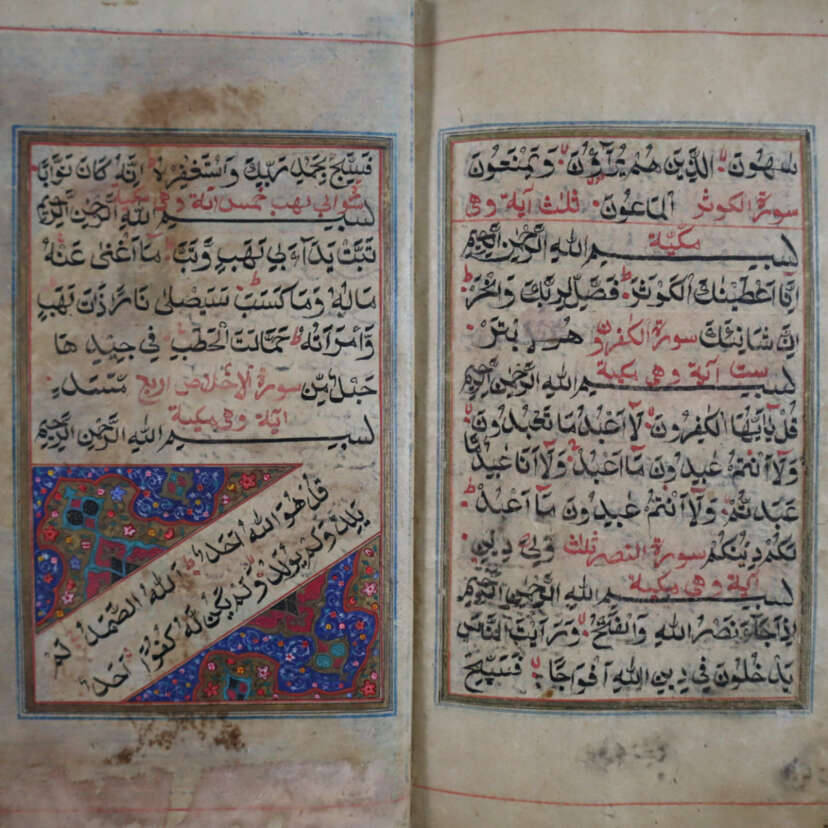 سَاهُونَ الَّذِينَ هُمْ يُرَآؤُنَ وَيَمْنَعُونَ
الْمَاعُونَ سورة الكوثر ثلث آية وهي
مكية
بِسْمِ اللهِ الرَّحْمٰنِ الرَّحِيمِ
اِنَّا اَعْطَيْنٰكَ الْكَوْثَرَ فَصَلِّ لِرَبِّكَ وَانْحَرْ
اِنَّ شَانِئَكَ هُوَ الْاَبْتَرُ سورة الكفرون
ست آية وهي مكية
بِسْمِ اللهِ الرَّحْمٰنِ الرَّحِيمِ
قُلْ يٰٓاَيُّهَا الْكٰفِرُونَ لَآ اَعْبُدُ مَا تَعْبُدُونَ
وَلَآ اَنْتُمْ عٰبِدُونَ مَآ اَعْبُدُ وَلَآ اَنَا عَابِدٌ مَا
عَبَدْتُمْ وَلَآ اَنْتُمْ عٰبِدُونَ مَآ اَعْبُدُ
لَكُمْ دِينُكُمْ وَلِيَ دِينِ سورة النصر ثلث
آية وهي مكية
بِسْمِ اللهِ الرَّحْمٰنِ الرَّحِيمِ
اِذَا جَآءَ نَصْرُ اللهِ وَالْفَتْحُ وَرَاَيْتَ النَّاسَ
يَدْخُلُونَ فِي دِينِ اللهِ اَفْوَاجًا فَسَبِّحْ
فَسَبِّحْ بِحَمْدِ رَبِّكَ وَاسْتَغْفِرْهُ اِنَّهُ كَانَ تَوَّابًا
ابي لهب خمس آية وهي مكية
بِسْمِ اللهِ الرَّحْمٰنِ الرَّحِيمِ
تَبَّتْ يَدَآ اَبِي لَهَبٍ وَّتَبَّ مَآ اَغْنٰى عَنْهُ
مَالُهُ وَمَا كَسَبَ سَيَصْلٰى نَارًا ذَاتَ لَهَبٍ
وَّامْرَاَتُهُ حَمَّالَتَ الْحَطَبِ فِي جِيدِهَا
حَبْلٌ مِّنْ مَّسَدٍ سورة الاخلاص اربع
آية وهي مكية
بِسْمِ اللهِ الرَّحْمٰنِ الرَّحِيمِ
قُلْ هُوَ اللهُ اَحَدٌ اَللهُ الصَّمَدُ لَمْ
يَلِدْ وَلَمْ يُولَدْ وَلَمْ يَكُنْ لَهُ كُفُوًا اَحَدٌ